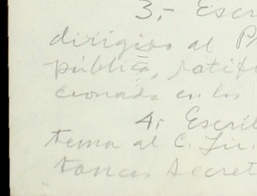 3.- Escri
dirigido al P
pública, ratif
cionada en los
4.- Escri
tema al C. Lic.
tonces Secret